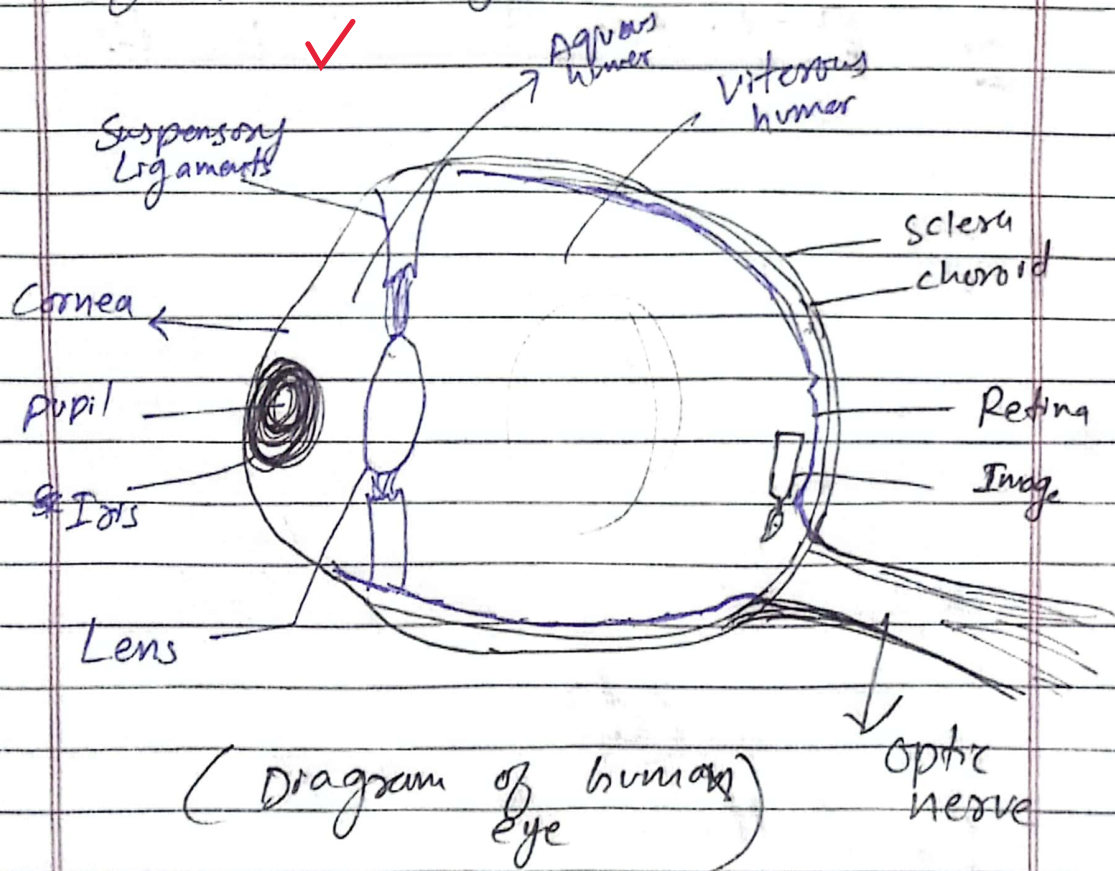 Aquous
humer
Viterous
humar
Suspensory
Ligaments
Sclera
choroid
Cornea
Pupil
Retina
Image
Iris
Lens
Optic
nerve
(Diagram of human
eye)